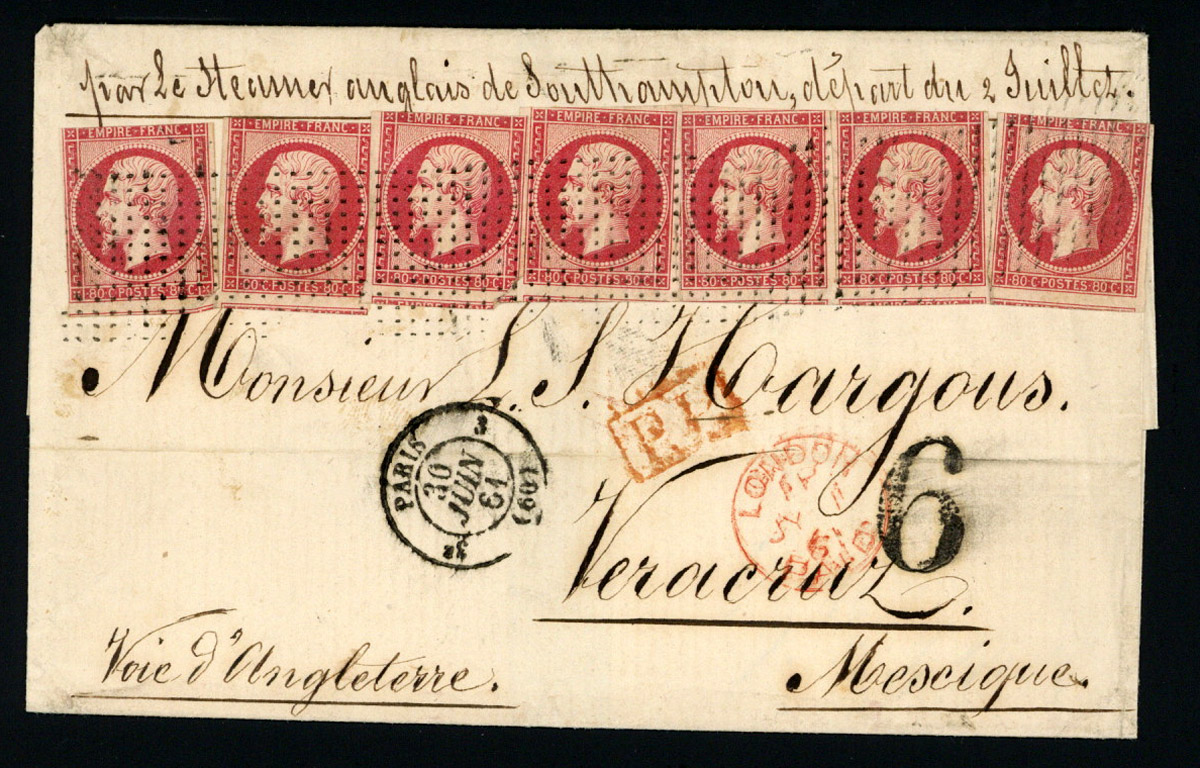 par Le Steamer anglais de Southampton, départ du 2 Juillet.
EMPIRE · FRANC EMPIRE · FRANC EMPIRE · FRANC EMPIRE · FRANC EMPIRE · FRANC EMPIRE · FRANC EMPIRE · FRANC
80 · C · POSTES · 80 · C · 80 · C · POSTES · 80 · C · 80 · C · POSTES · 80 · C · 80 · C · POSTES · 80 · C · 80 · C · POSTES · 80 · C · 80 · C · POSTES · 80 · C · 80 · C · POSTES · 80 · C ·
Monsieur L. S. Hargous.
PARIS
3
30
JUIN
61
(60)
3E
LONDON
JY
61
PAID
6
Veracruz.
Voie d'Angleterre.
Mescique.